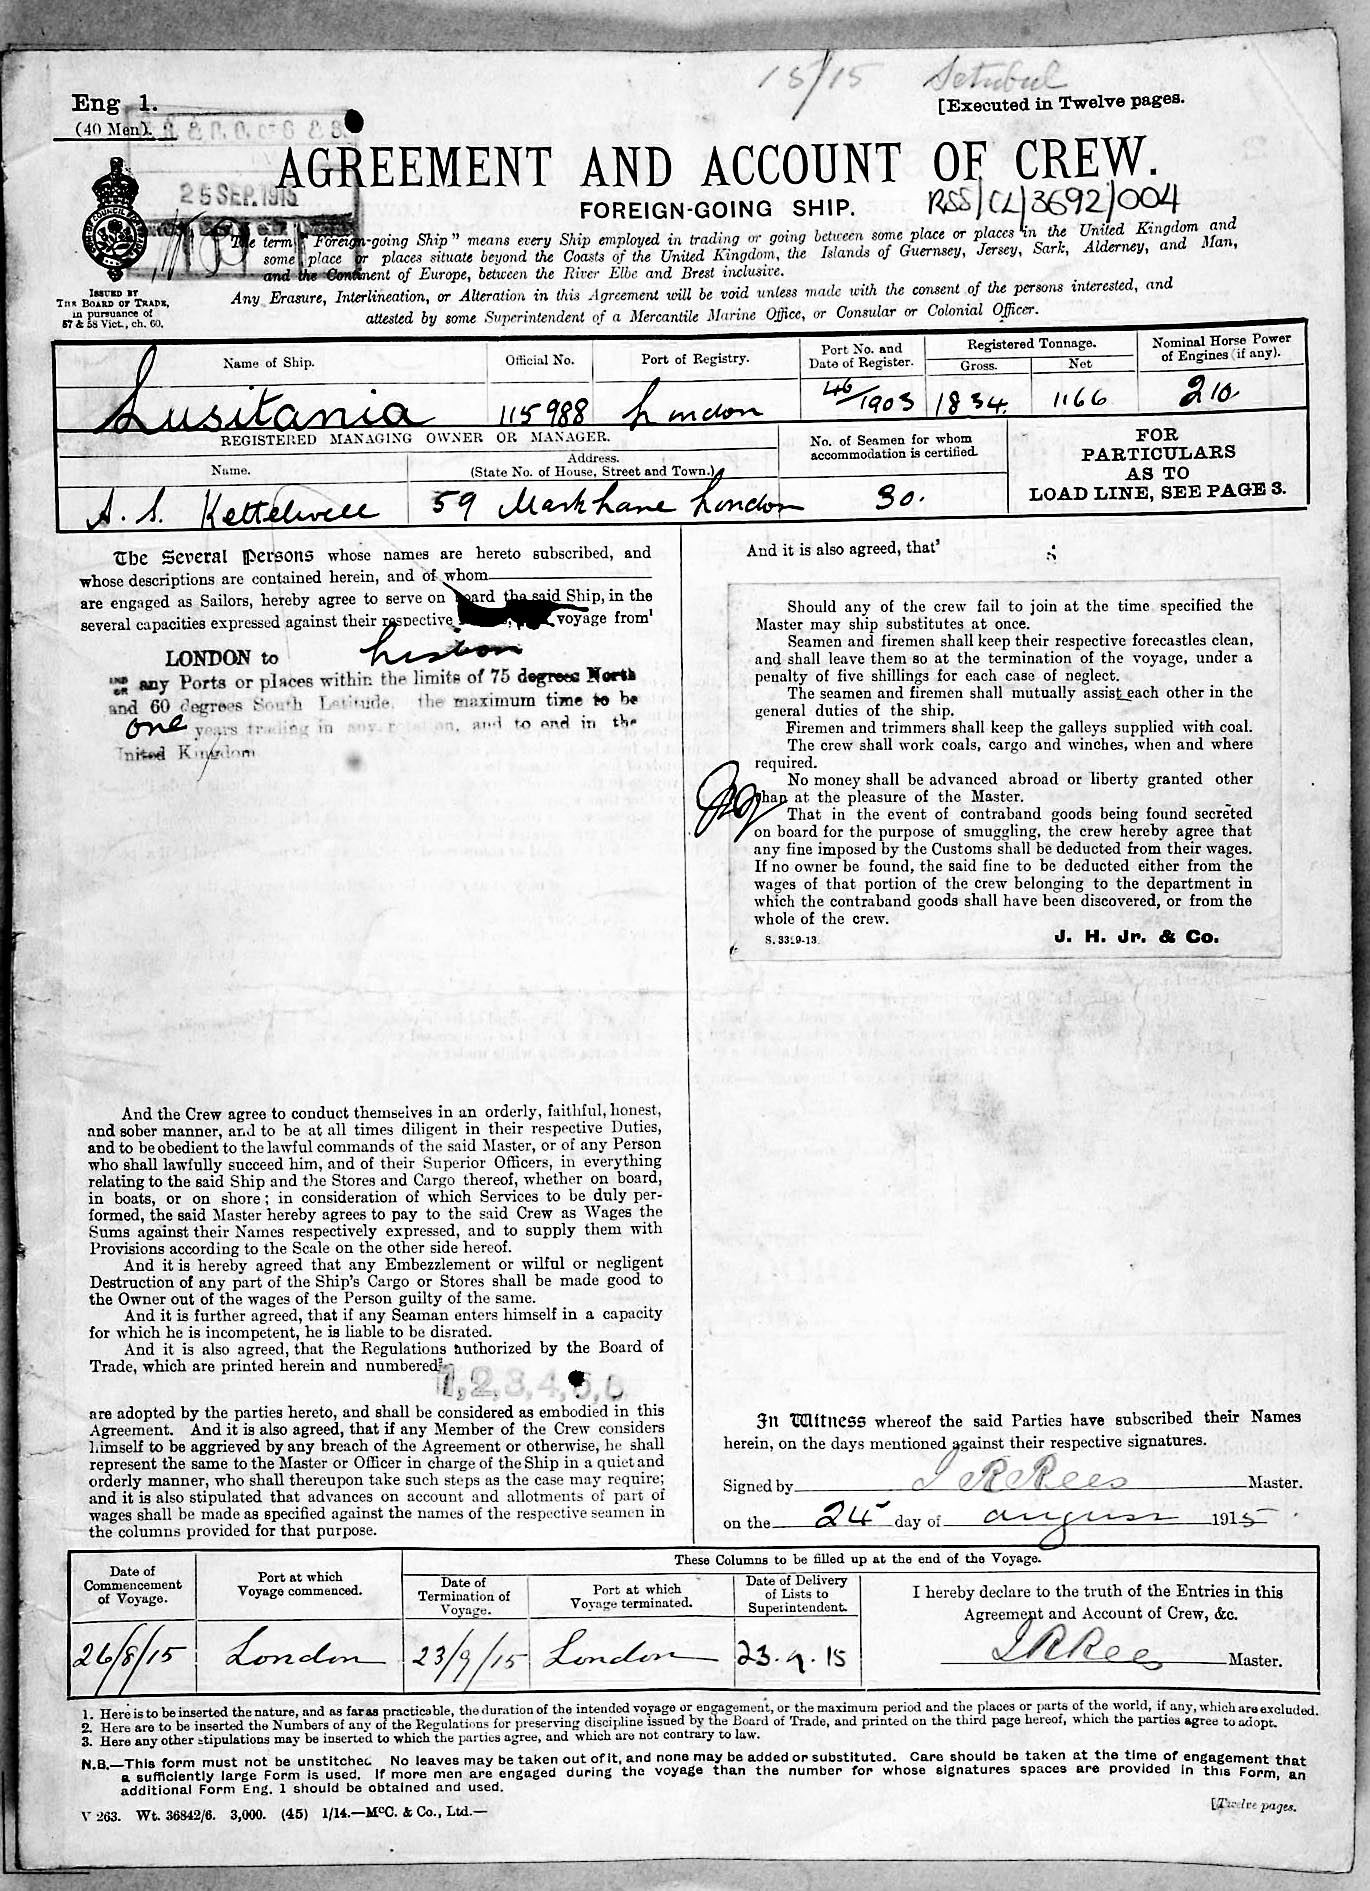 15/15 Setubal
Eng 1.
(40 Men).
[Executed in Twelve pages.
25 SEP. 1915
AGREEMENT AND ACCOUNT OF CREW.
FOREIGN-GOING SHIP. RSS/CL/3692/004
The term "Foreign-going Ship" means every Ship employed in trading or going between some place or places in the United Kingdom and
some place or places situate beyond the Coasts of the United Kingdom, the Islands of Guernsey, Jersey, Sark, Alderney, and Man,
and the Continent of Europe, between the River Elbe and Brest inclusive.
Any Erasure, Interlineation, or Alteration in this Agreement will be void unless made with the consent of the persons interested, and
attested by some Superintendent of a Mercantile Marine Office, or Consular or Colonial Officer.
ISSUED BY
THE BOARD OF TRADE,
in pursuance of
57 & 58 Vict., ch. 60.
Name of Ship. Official No. Port of Registry. Port No. and Date of Register. Registered Tonnage. Gross. Net Nominal Horse Power of Engines (if any).
Lusitania 115988 London 46/1903 1834. 1166 210.
REGISTERED MANAGING OWNER OR MANAGER.
Name. Address. (State No. of House, Street and Town.)
No. of Seamen for whom accommodation is certified.
A. S. Kettelwell 59 Mark Lane London 30.
FOR
PARTICULARS
AS TO
LOAD LINE, SEE PAGE 3.
The Several Persons whose names are hereto subscribed, and
whose descriptions are contained herein, and of whom
are engaged as Sailors, hereby agree to serve on board the said Ship, in the
several capacities expressed against their respective voyage from¹
LONDON to Lisbon
any Ports or places within the limits of 75 degrees North
and 60 degrees South Latitude, the maximum time to be
one years trading in any rotation, and to end in the
United Kingdom
And the Crew agree to conduct themselves in an orderly, faithful, honest,
and sober manner, and to be at all times diligent in their respective Duties,
and to be obedient to the lawful commands of the said Master, or of any Person
who shall lawfully succeed him, and of their Superior Officers, in everything
relating to the said Ship and the Stores and Cargo thereof, whether on board,
in boats, or on shore; in consideration of which Services to be duly per-
formed, the said Master hereby agrees to pay to the said Crew as Wages the
Sums against their Names respectively expressed, and to supply them with
Provisions according to the Scale on the other side hereof.
And it is hereby agreed that any Embezzlement or wilful or negligent
Destruction of any part of the Ship's Cargo or Stores shall be made good to
the Owner out of the wages of the Person guilty of the same.
And it is further agreed, that if any Seaman enters himself in a capacity
for which he is incompetent, he is liable to be disrated.
And it is also agreed, that the Regulations authorized by the Board of
Trade, which are printed herein and numbered²
1, 2, 3, 4, 5, 6
are adopted by the parties hereto, and shall be considered as embodied in this
Agreement. And it is also agreed, that if any Member of the Crew considers
himself to be aggrieved by any breach of the Agreement or otherwise, he shall
represent the same to the Master or Officer in charge of the Ship in a quiet and
orderly manner, who shall thereupon take such steps as the case may require;
and it is also stipulated that advances on account and allotments of part of
wages shall be made as specified against the names of the respective seamen in
the columns provided for that purpose.
And it is also agreed, that³
Should any of the crew fail to join at the time specified the
Master may ship substitutes at once.
Seamen and firemen shall keep their respective forecastles clean,
and shall leave them so at the termination of the voyage, under a
penalty of five shillings for each case of neglect.
The seamen and firemen shall mutually assist each other in the
general duties of the ship.
Firemen and trimmers shall keep the galleys supplied with coal.
The crew shall work coals, cargo and winches, when and where
required.
No money shall be advanced abroad or liberty granted other
than at the pleasure of the Master.
That in the event of contraband goods being found secreted
on board for the purpose of smuggling, the crew hereby agree that
any fine imposed by the Customs shall be deducted from their wages.
If no owner be found, the said fine to be deducted either from the
wages of that portion of the crew belonging to the department in
which the contraband goods shall have been discovered, or from the
whole of the crew.
S. 3319-13. J. H. Jr. & Co.
In Witness whereof the said Parties have subscribed their Names
herein, on the days mentioned against their respective signatures.
Signed by J R Rees Master.
on the 24 day of august 1915
Date of Commencement of Voyage. Port at which Voyage commenced.
These Columns to be filled up at the end of the Voyage.
Date of Termination of Voyage. Port at which Voyage terminated. Date of Delivery of Lists to Superintendent.
I hereby declare to the truth of the Entries in this
Agreement and Account of Crew, &c.
26/8/15 London 23/9/15 London 23.9.15
J R Rees Master.
1. Here is to be inserted the nature, and as far as practicable, the duration of the intended voyage or engagement, or the maximum period and the places or parts of the world, if any, which are excluded.
2. Here are to be inserted the Numbers of any of the Regulations for preserving discipline issued by the Board of Trade, and printed on the third page hereof, which the parties agree to adopt.
3. Here any other stipulations may be inserted to which the parties agree, and which are not contrary to law.
N.B.—This form must not be unstitched. No leaves may be taken out of it, and none may be added or substituted. Care should be taken at the time of engagement that
a sufficiently large Form is used. If more men are engaged during the voyage than the number for whose signatures spaces are provided in this Form, an
additional Form Eng. 1 should be obtained and used.
V 263. Wt. 36842/6. 3,000. (45) 1/14.—McC. & Co., Ltd.—
[Twelve pages.